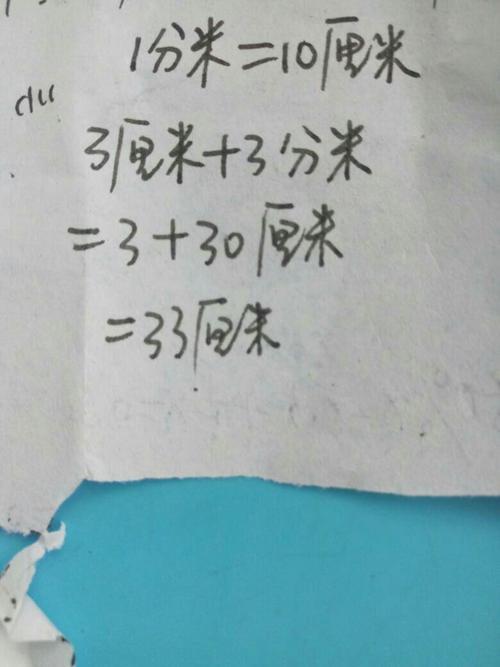 1分米=10厘米
3厘米+3分米
=3+30厘米
=33厘米